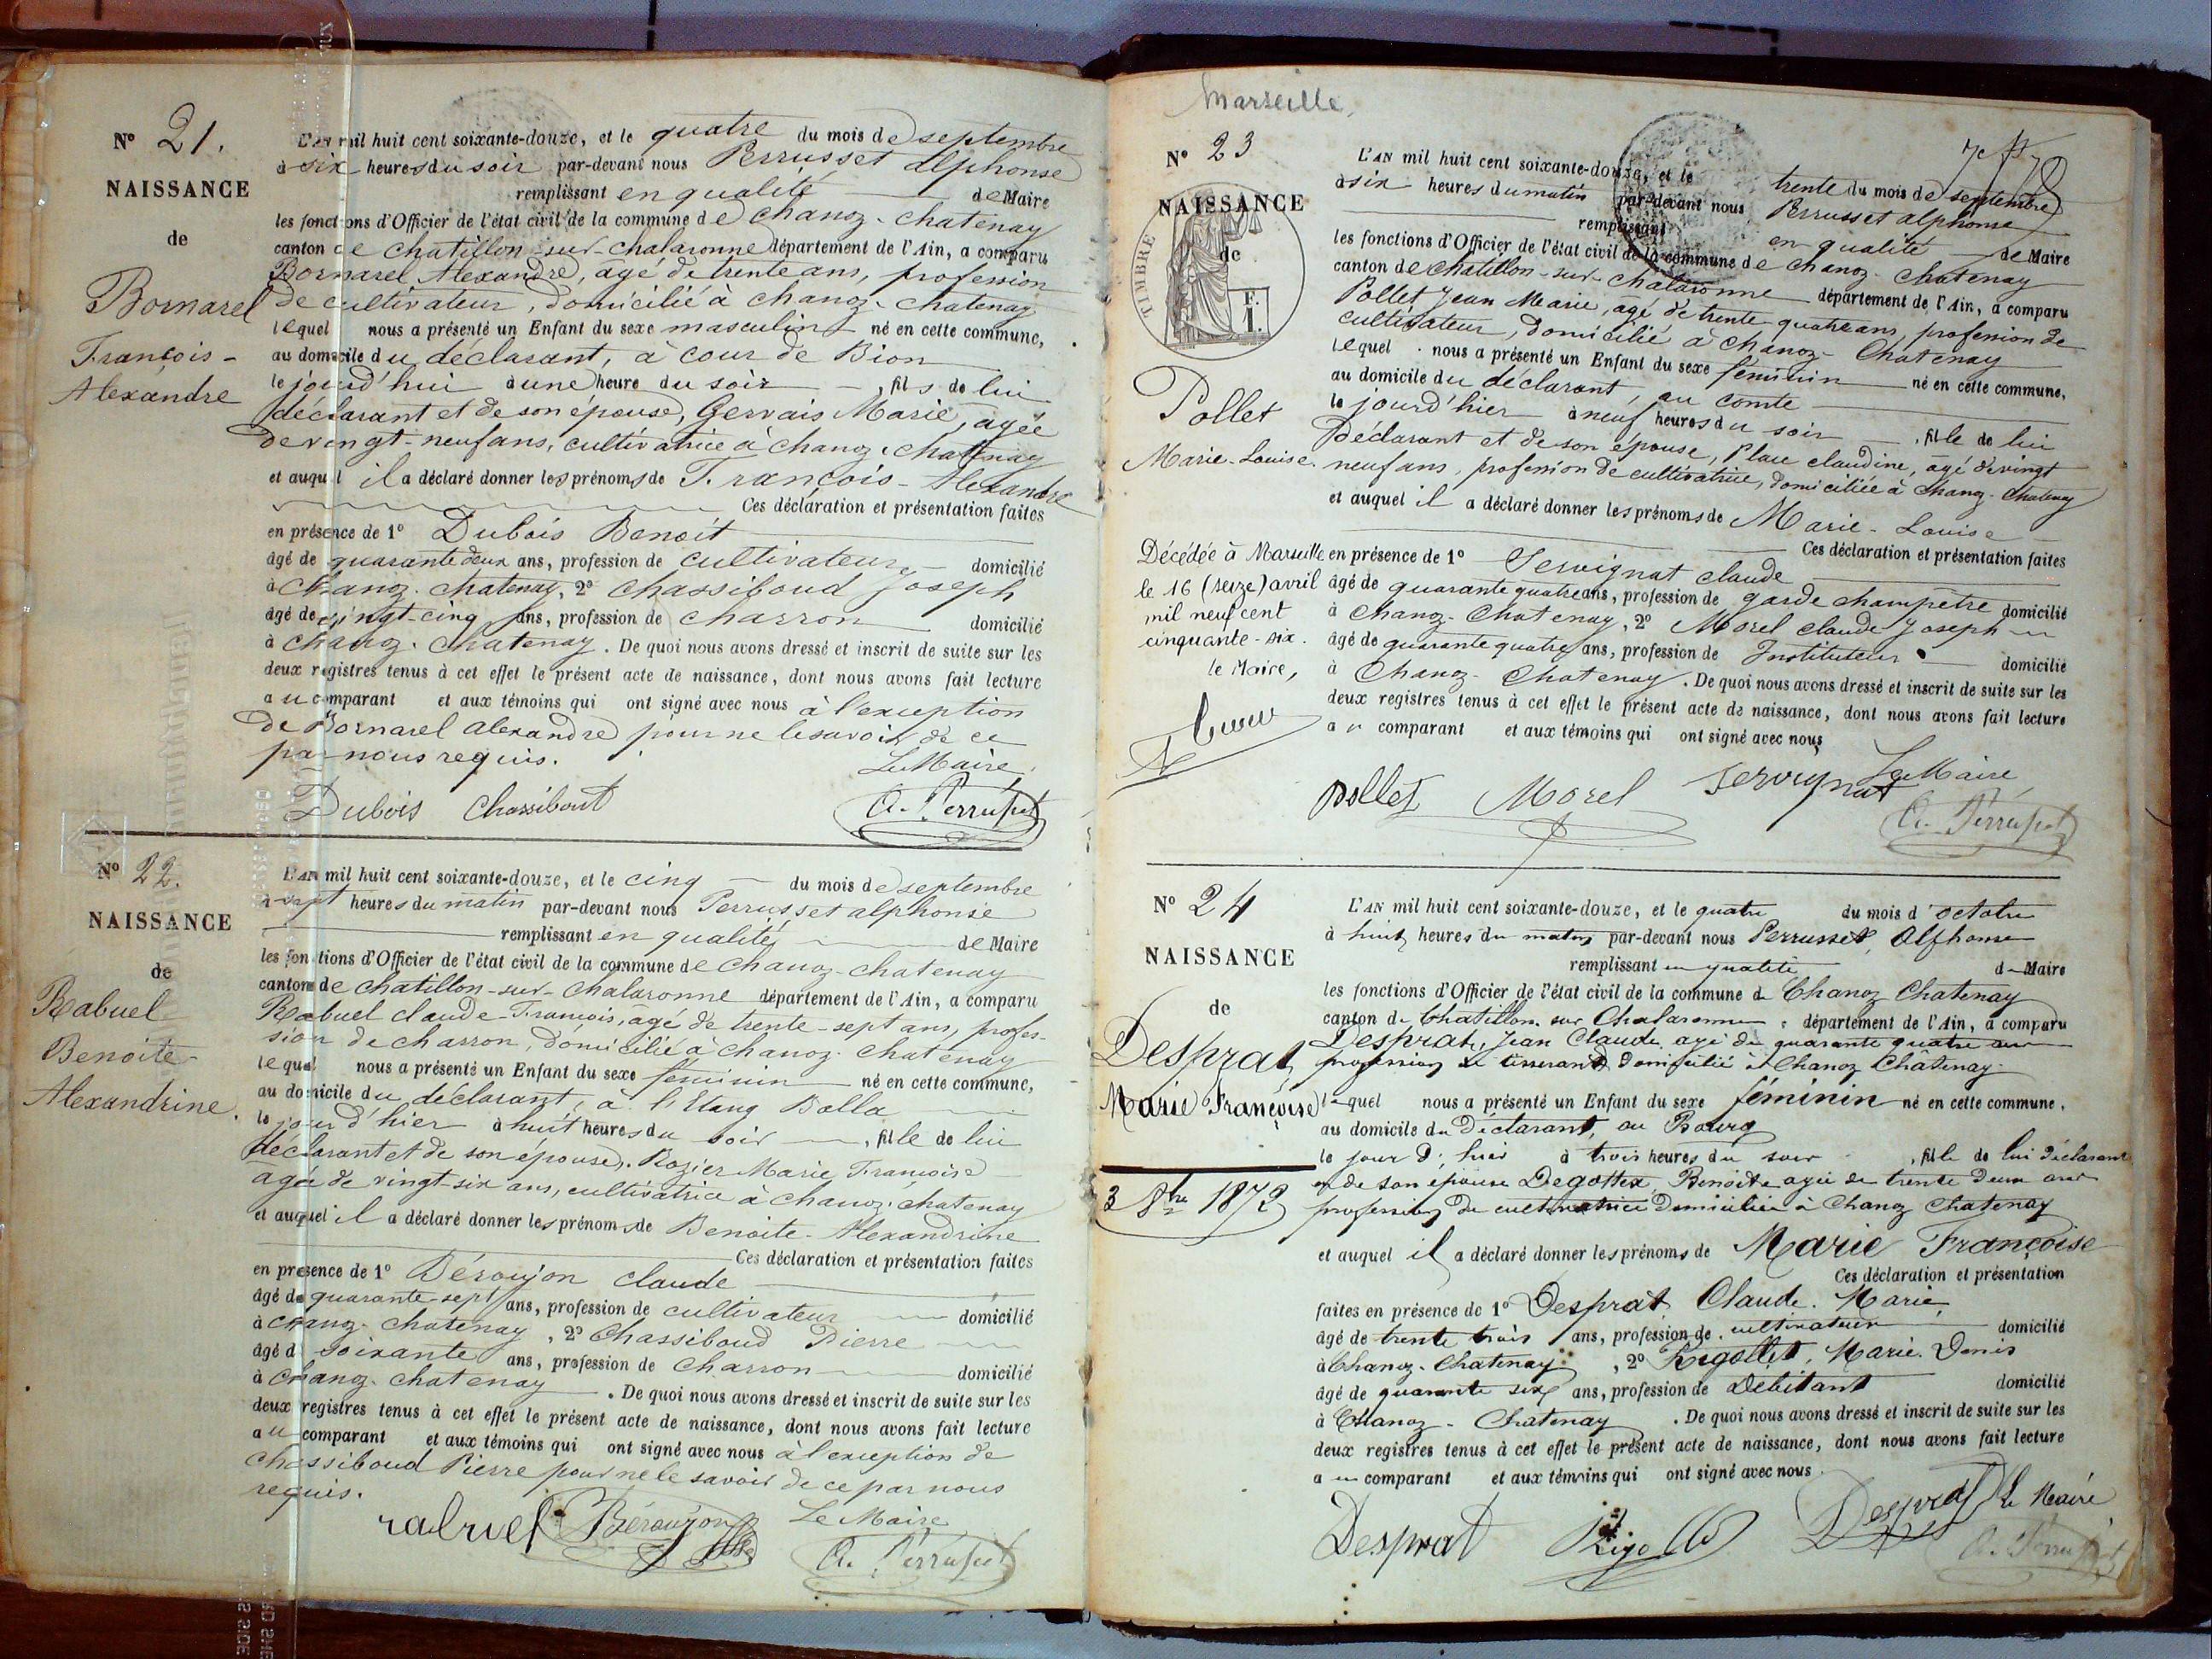 Nº 21.
NAISSANCE
de
Bornarel
François-
Alexandre
L'AN mil huit cent soixante-douze, et le quatre du mois de septembre
à six heures du soir par-devant nous Perrusset alphonse
remplissant en qualité de Maire
les fonctions d'Officier de l'état civil de la commune de Chanoz-Chatenay
canton de Chatillon-sur-Chalaronne département de l'Ain, a comparu
Bornarel Alexandre, agé de trente ans, profession
de cultivateur, domicilié à Chanoz-Chatenay
lequel nous a présenté un Enfant du sexe masculin né en cette commune,
au domicile du déclarant, à Cour de Bion
le jourd'hui à une heure du soir, fils de lui
déclarant et de son épouse, Gervais Marie, agée
de vingt-neuf ans, cultivatrice à Chanoz-Chatenay
et auquel il a déclaré donner les prénoms de François-Alexandre
Ces déclaration et présentation faites
en présence de 1º Dubois Benoit
âgé de quarante deux ans, profession de cultivateur domicilié
à Chanoz-Chatenay, 2º Chassiboud Joseph
âgé de vingt-cinq ans, profession de charron domicilié
à Chanoz-Chatenay. De quoi nous avons dressé et inscrit de suite sur les
deux registres tenus à cet effet le présent acte de naissance, dont nous avons fait lecture
au comparant et aux témoins qui ont signé avec nous à l'exception
de Bornarel Alexandre pour ne le savoir de ce
par nous requis.
Le Maire,
Dubois Chassibout A. Perrusset
Nº 22.
NAISSANCE
de
Rabuel
Benoite-
Alexandrine.
L'AN mil huit cent soixante-douze, et le cinq du mois de septembre
à sept heures du matin par-devant nous Perrusset alphonse
remplissant en qualité de Maire
les fonctions d'Officier de l'état civil de la commune de Chanoz-Chatenay
canton de Chatillon-sur-Chalaronne département de l'Ain, a comparu
Rabuel Claude-François, agé de trente-sept ans, profes-
sion de charron, domicilié à Chanoz-Chatenay
lequel nous a présenté un Enfant du sexe féminin né en cette commune,
au domicile du déclarant, à l'Etang Balla
le jourd'hier à huit heures du soir, fille de lui
déclarant et de son épouse, Rozier Marie Françoise
agée de vingt-six ans, cultivatrice à Chanoz-Chatenay
et auquel il a déclaré donner les prénoms de Benoite-Alexandrine
Ces déclaration et présentation faites
en présence de 1º Béroujon Claude
âgé de quarante-sept ans, profession de cultivateur domicilié
à Chanoz-Chatenay, 2º Chassiboud Pierre
âgé de soixante ans, profession de charron domicilié
à Chanoz-Chatenay. De quoi nous avons dressé et inscrit de suite sur les
deux registres tenus à cet effet le présent acte de naissance, dont nous avons fait lecture
au comparant et aux témoins qui ont signé avec nous à l'exception de
Chassiboud Pierre pour ne le savoir de ce par nous
requis.
Le Maire
rabuel Béroujon A. Perrusset
Marseille,
Nº 23
NAISSANCE
de
TIMBRE
F.
I.
Pollet
Marie-Louise.
L'AN mil huit cent soixante-douze, et le trente du mois de septembre
à six heures du matin par-devant nous Perrusset alphonse
remplissant en qualité de Maire
les fonctions d'Officier de l'état civil de la commune de Chanoz-Chatenay
canton de Chatillon-sur-Chalaronne département de l'Ain, a comparu
Pollet Jean Marie, agé de trente-quatre ans, profession de
cultivateur, domicilié à Chanoz-Chatenay
lequel nous a présenté un Enfant du sexe féminin né en cette commune,
au domicile du déclarant, au Comte
le jourd'hier à neuf heures du soir, fille de lui
Déclarant et de son épouse, Place Claudine, agé de vingt
neuf ans, profession de cultivatrice, domiciliée à Chanoz-Chatenay
et auquel il a déclaré donner les prénoms de Marie-Louise
Ces déclaration et présentation faites
en présence de 1º Servignat Claude
âgé de quarante quatre ans, profession de garde champêtre domicilié
à Chanoz-Chatenay, 2º Morel Claude Joseph
âgé de quarante quatre ans, profession de Instituteur domicilié
à Chanoz-Chatenay. De quoi nous avons dressé et inscrit de suite sur les
deux registres tenus à cet effet le présent acte de naissance, dont nous avons fait lecture
au comparant et aux témoins qui ont signé avec nous
Décédée à Marseille
le 16 (seize) avril
mil neuf cent
cinquante-six.
le Maire,
Le Maire
pollet Morel servignat A. Perrusset
Nº 24
NAISSANCE
de
Desprat
Marie Françoise
3 8bre 1872
L'AN mil huit cent soixante-douze, et le quatre du mois d'octobre
à huit heures du matin par-devant nous Perrusset Alphonse
remplissant en qualité de Maire
les fonctions d'Officier de l'état civil de la commune de Chanoz Chatenay
canton de Chatillon sur Chalaronne département de l'Ain, a comparu
Desprat, Jean Claude, agé de quarante quatre ans
profession de tisserand domicilié à Chanoz Châtenay
lequel nous a présenté un Enfant du sexe féminin né en cette commune,
au domicile du Déclarant, au Bourg
le jour d'hier à trois heures du soir, fille de lui déclarant
et de son épouse Degottex Benoite agée de trente deux ans
profession de cultivatrice Domiciliée à Chanoz Chatenay
et auquel il a déclaré donner les prénoms de Marie Françoise
Ces déclaration et présentation
faites en présence de 1º Desprat Claude. Marie
âgé de trente trois ans, profession de cultivateur domicilié
à Chanoz-Chatenay, 2º Rigollet, Marie. Denis
âgé de quarante six ans, profession de Débitant domicilié
à Chanoz-Chatenay. De quoi nous avons dressé et inscrit de suite sur les
deux registres tenus à cet effet le présent acte de naissance, dont nous avons fait lecture
au comparant et aux témoins qui ont signé avec nous.
Desprat Desprat Le Maire
A. Perrusset